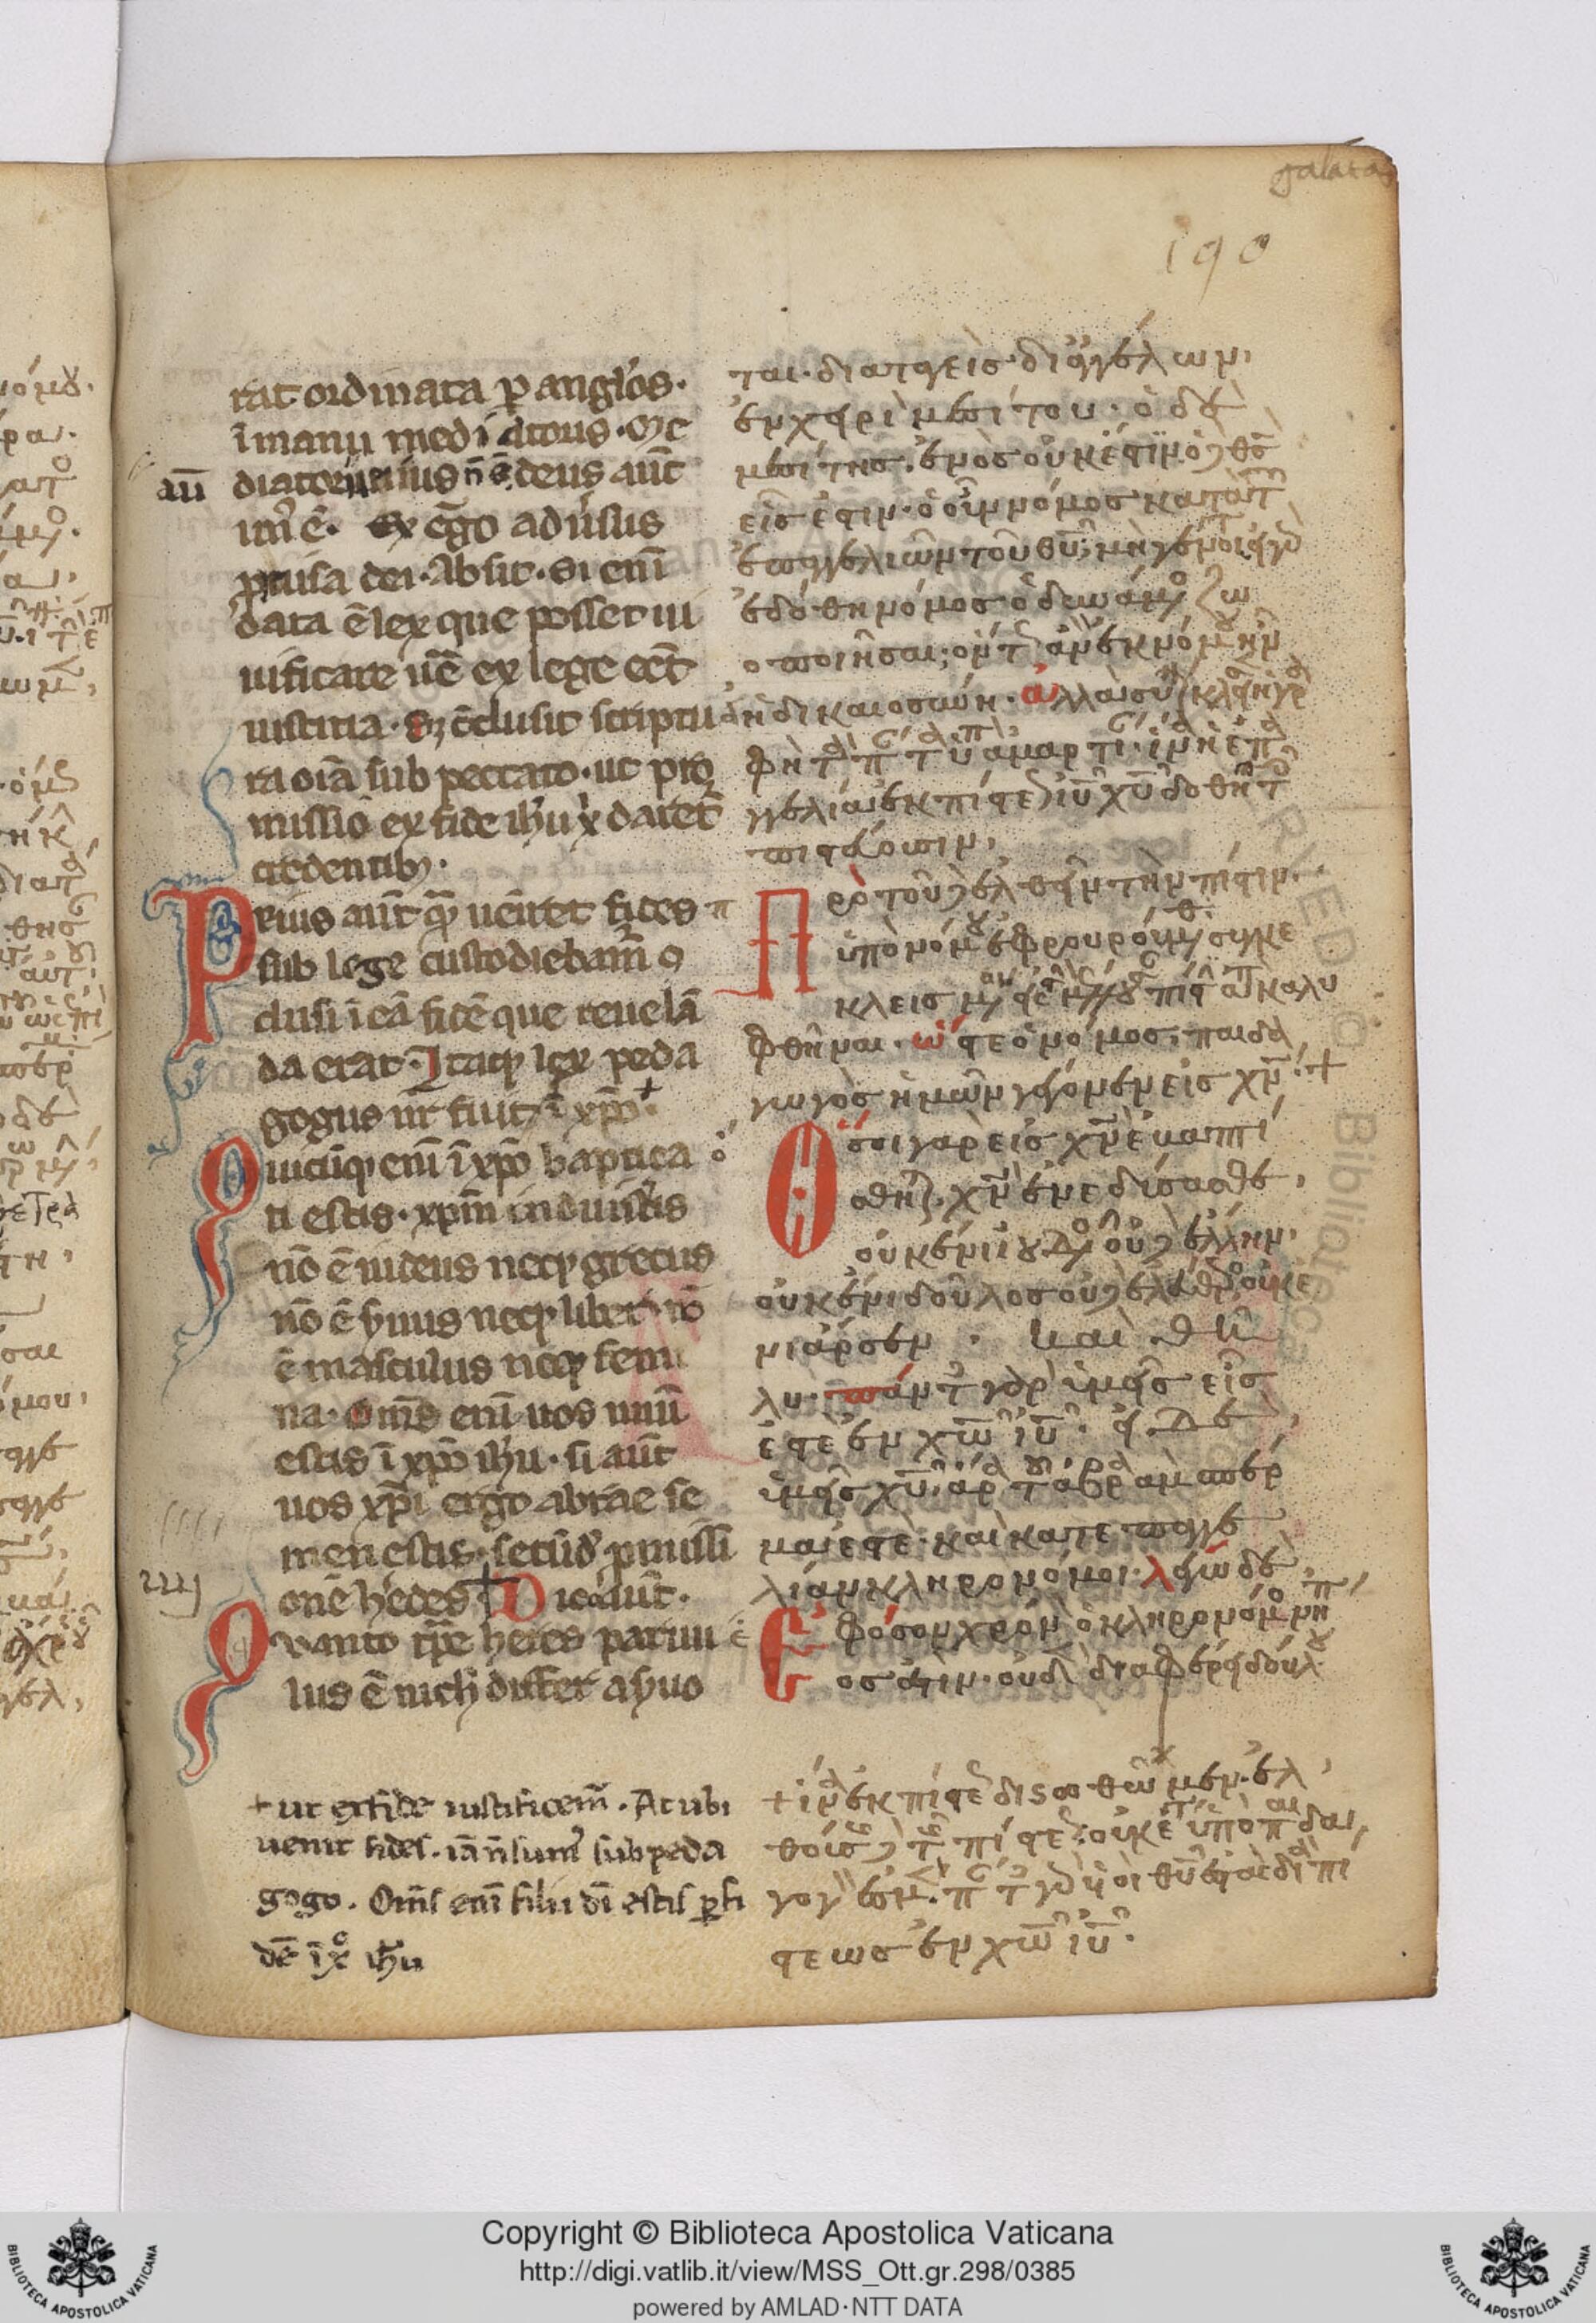 galatas
190
rat ordinata p anglos.
ī manu mediatoris. Me
diator unius n̄ ē. deus aūt
aū
un᾽ ē. Lex ḡo adūsus
p̄missa dei. Absit. Si enī
data ē lex que posset ui
uificare uē ex lege eēt
iusticia. Sꝫ c̄clusit scriptu
ra oīa sub peccato. ut pro
missio ex fide ihu x̄ daret᷑
credentibꝫ.
Prius aūt q̄ ueniret fides
sub lege custodiebam᷑ 9
clusi ī eā fidē que reuelā
da erat. Itaqꝫ lex peda
gogus nr̄ fuit ī xp̄o +
Quicūqꝫ enī ī xp̄o baptiza
ti estis. xp̄m induistis
nō ē iudeus neqꝫ grecus
nō ē s̓uus neqꝫ liber. nō
ē masculus neqꝫ femi
na. Om̄s enī uos unū
estis ī xp̄o ihu. si aūt
uos xp̄i ergo abrae se
men estis. secūd᷑ p̄missi
onē h̓edes + Dico aūt.
Quanto tp̄e heres paruu
lus ē nich̓ differt a s̓uo
+ ut ex fide iustificem᷑. At ubi
uenit fides. iā n̄ sum᷑ sub peda
gogo. Om̄s enī filii dī estis ꝑ fi
dē ī x̊ ihu
ται. διαταγεὶς δι ἀγγέλων,
ἐν χειρὶ μεσίτου. ὁ δὲ
μεσίτης, ἑνὸς οὐκ ἔστιν. ὁ θς̄
εἷς ἐστιν. ὁ οὖν νόμος κατὰ τ
ἐπαγγελιῶν τοῦ θῡ, μὴ γένοιτο. εἰ γὰρ
ἐδόθη νόμος ὁ δυνάμενο ζω
οποιῆσαι, ὄντ ἂν ἐκ νόμου ἦν
ἡ δικαιοσύνη. ἀλλὰ συνέκλεισεν ἡ γρ
φὴ τ π τ ὑ ἁμαρτι. ἵνα ἡ ἐπα
γγελία ἐκ πίστεως ιῡ χῡ δοθῆ τ
πιστεύουσιν,
Πρὸ τοῦ δὲ ἐλθεῖν τὴν πίστιν.
ὑπὸ νόμον ἐφρουρούμεθα συγκε
κλεισμ εἰς τ μ πίστ ἀποκαλυ
φθῆναι. ὥστε ὁ νόμος, παιδα
γωγὸς ἡμῶν γέγονεν εἰς χν̄. +
Ὅσοι γὰρ εἰς χν̄ ἐβαπτί
σθητε, χν̄ ἐνεδύσασθε,
οὐκ ἔνι ἰουδαῖο οὐδὲ ἕλλην,
οὐκ ἔνι δοῦλος οὐδὲ ἐλεύθερο οὐκ ἔ
νι ἄρσεν . καὶ θῆ
λυ. πάντ γὰρ ὑμεῖς εἷς
ἐστὲ ἐν χω̄ ιῡ. εἰ δὲ
ὑμεῖς χῡ, ἄρα τ ἀβραὰμ σπέρ
μα ἐστέ. καὶ κατ ἐπαγγε
λίαν κληρονόμοι. λέγω δὲ,
Ἐφ ὅσον χρόν ὁ κληρονόμο νή
πιός ἐστιν. οὐδὲν διαφέρει δούλου
+ ἵνα ἐκ πίστε δικαιωθῶμεν. ἐλ
θούσης δὲ τ πίστεως οὐκέτι ὑπὸ παιδα
γογόν ἐσμεν. π τ γὰρ υἱοὶ θῡ ἐστὲ διὰ πί
στεως ἐν χω̄ ιῡ.
Copyright © Biblioteca Apostolica Vaticana
http://digi.vatlib.it/view/MSS_Ott.gr.298/0385
powered by AMLAD·NTT DATA